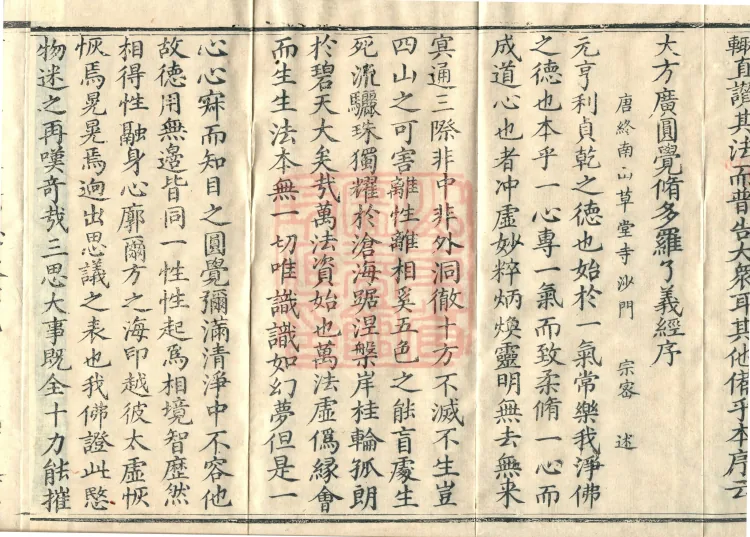 輙直證其法而普告大衆耳其他備乎本序云
大方廣圓覺脩多羅了義經序
唐終南山草堂寺沙門 宗密 述
元亨利貞乾之德也始於一氣常樂我淨佛
之德也本乎一心專一氣而致柔脩一心而
成道心也者冲虛妙粹炳煥靈明無去無来
冥通三際非中非外洞徹十方不滅不生豈
四山之可害離性離相奚五色之能盲處生
死流驪珠獨耀於滄海踞涅槃岸桂輪孤朗
於碧天大矣哉萬法資始也萬法虛僞緣會
而生生法本無一切唯識識如幻夢但是一
心心寂而知目之圓覺彌滿清淨中不容他
故德用無邊皆同一性性起爲相境智歷然
相得性融身心廓爾方之海印越彼太虛恢
恢焉晃晃焉逈出思議之表也我佛證此愍
物迷之再嘆奇哉三思大事既全十力能摧